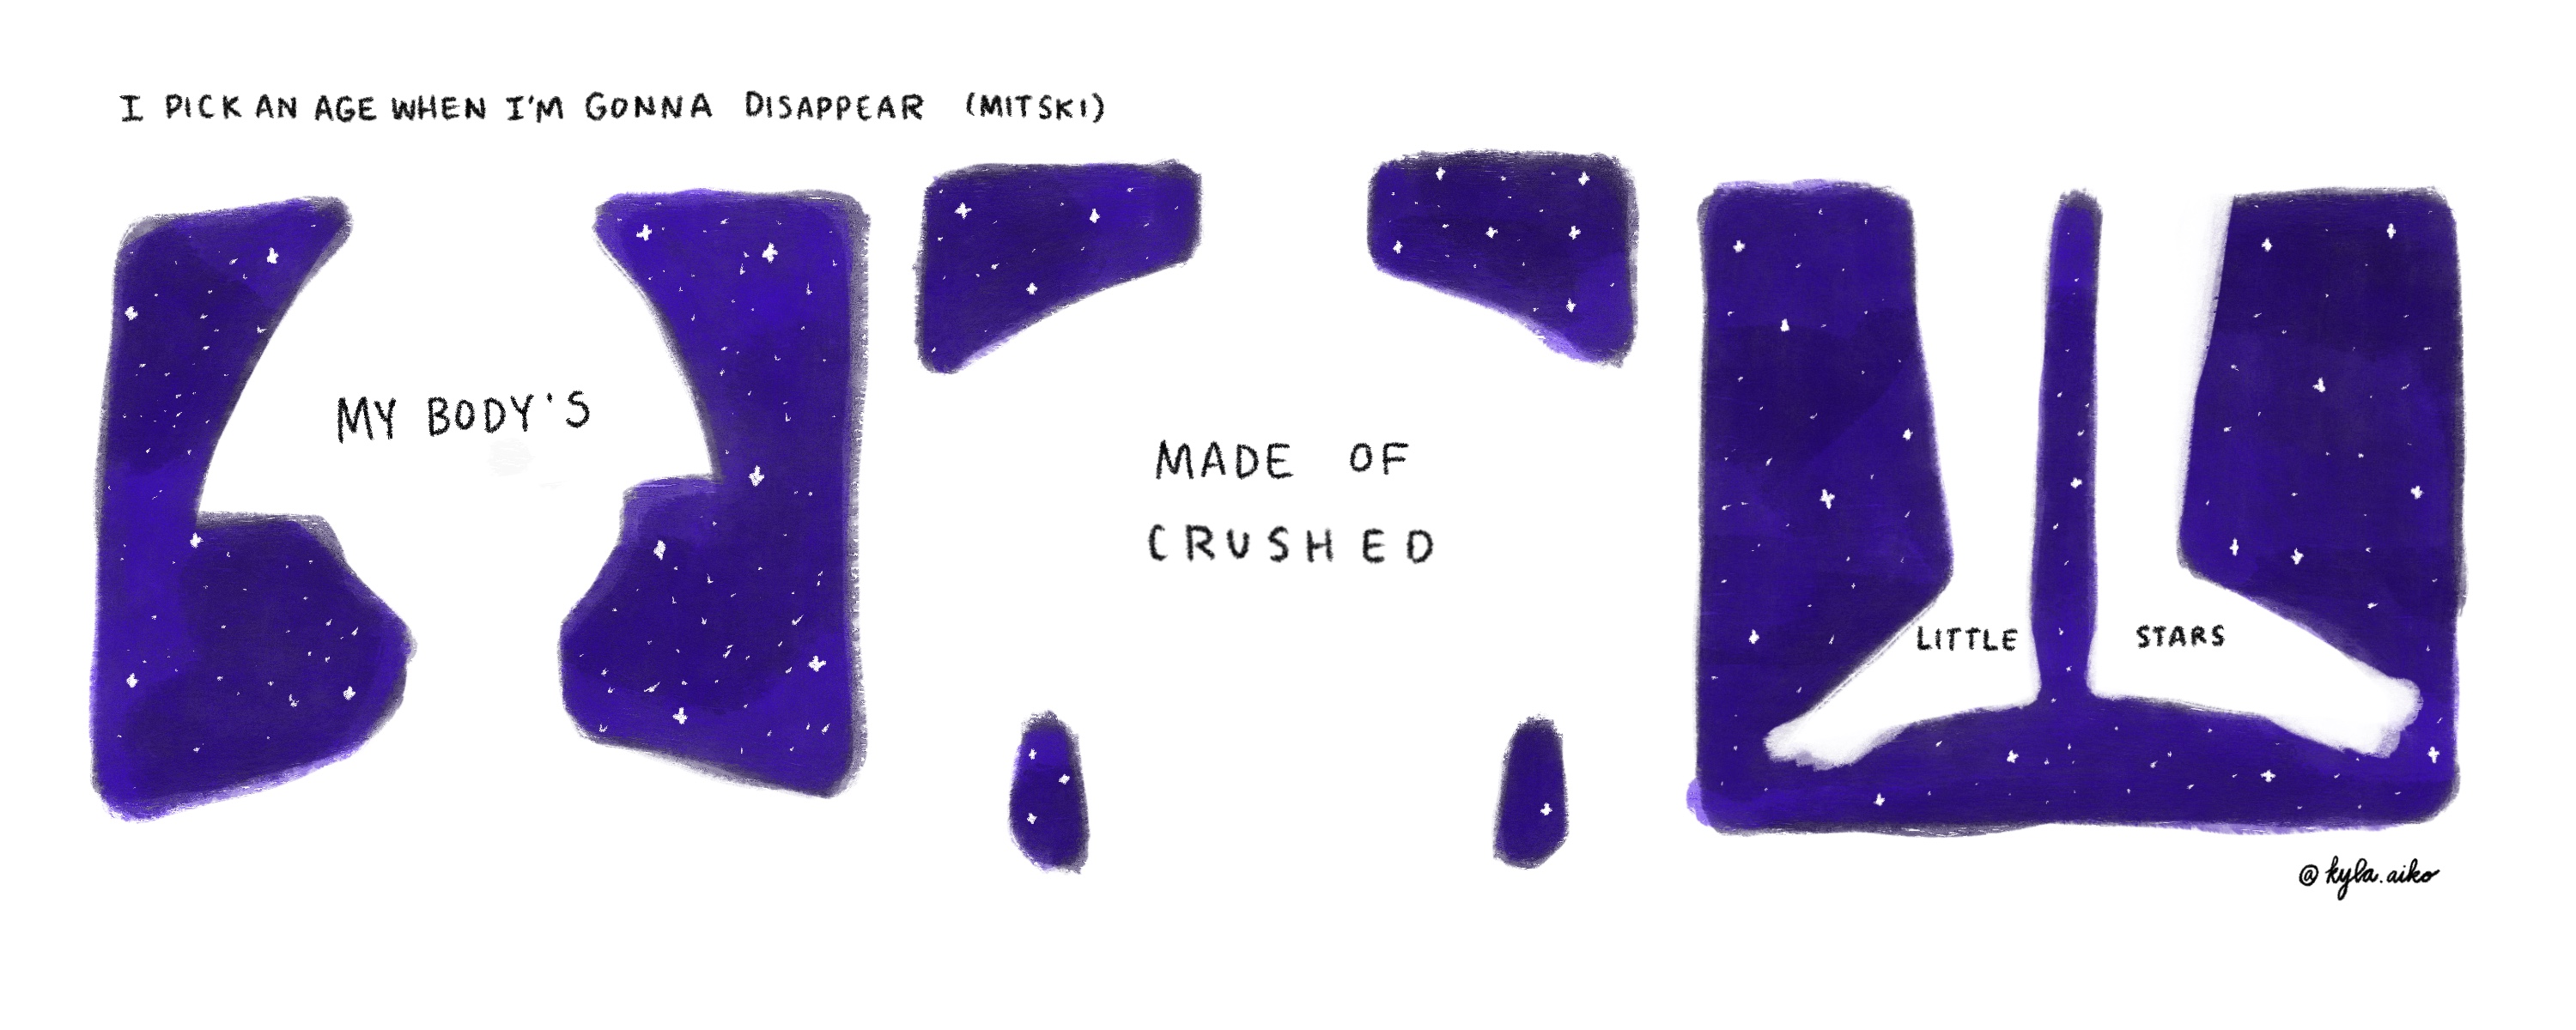 I PICK AN AGE WHEN I'M GONNA DISAPPEAR (MITSKI)
MY BODY'S
MADE OF
CRUSHED
LITTLE STARS
@kyla.aiko